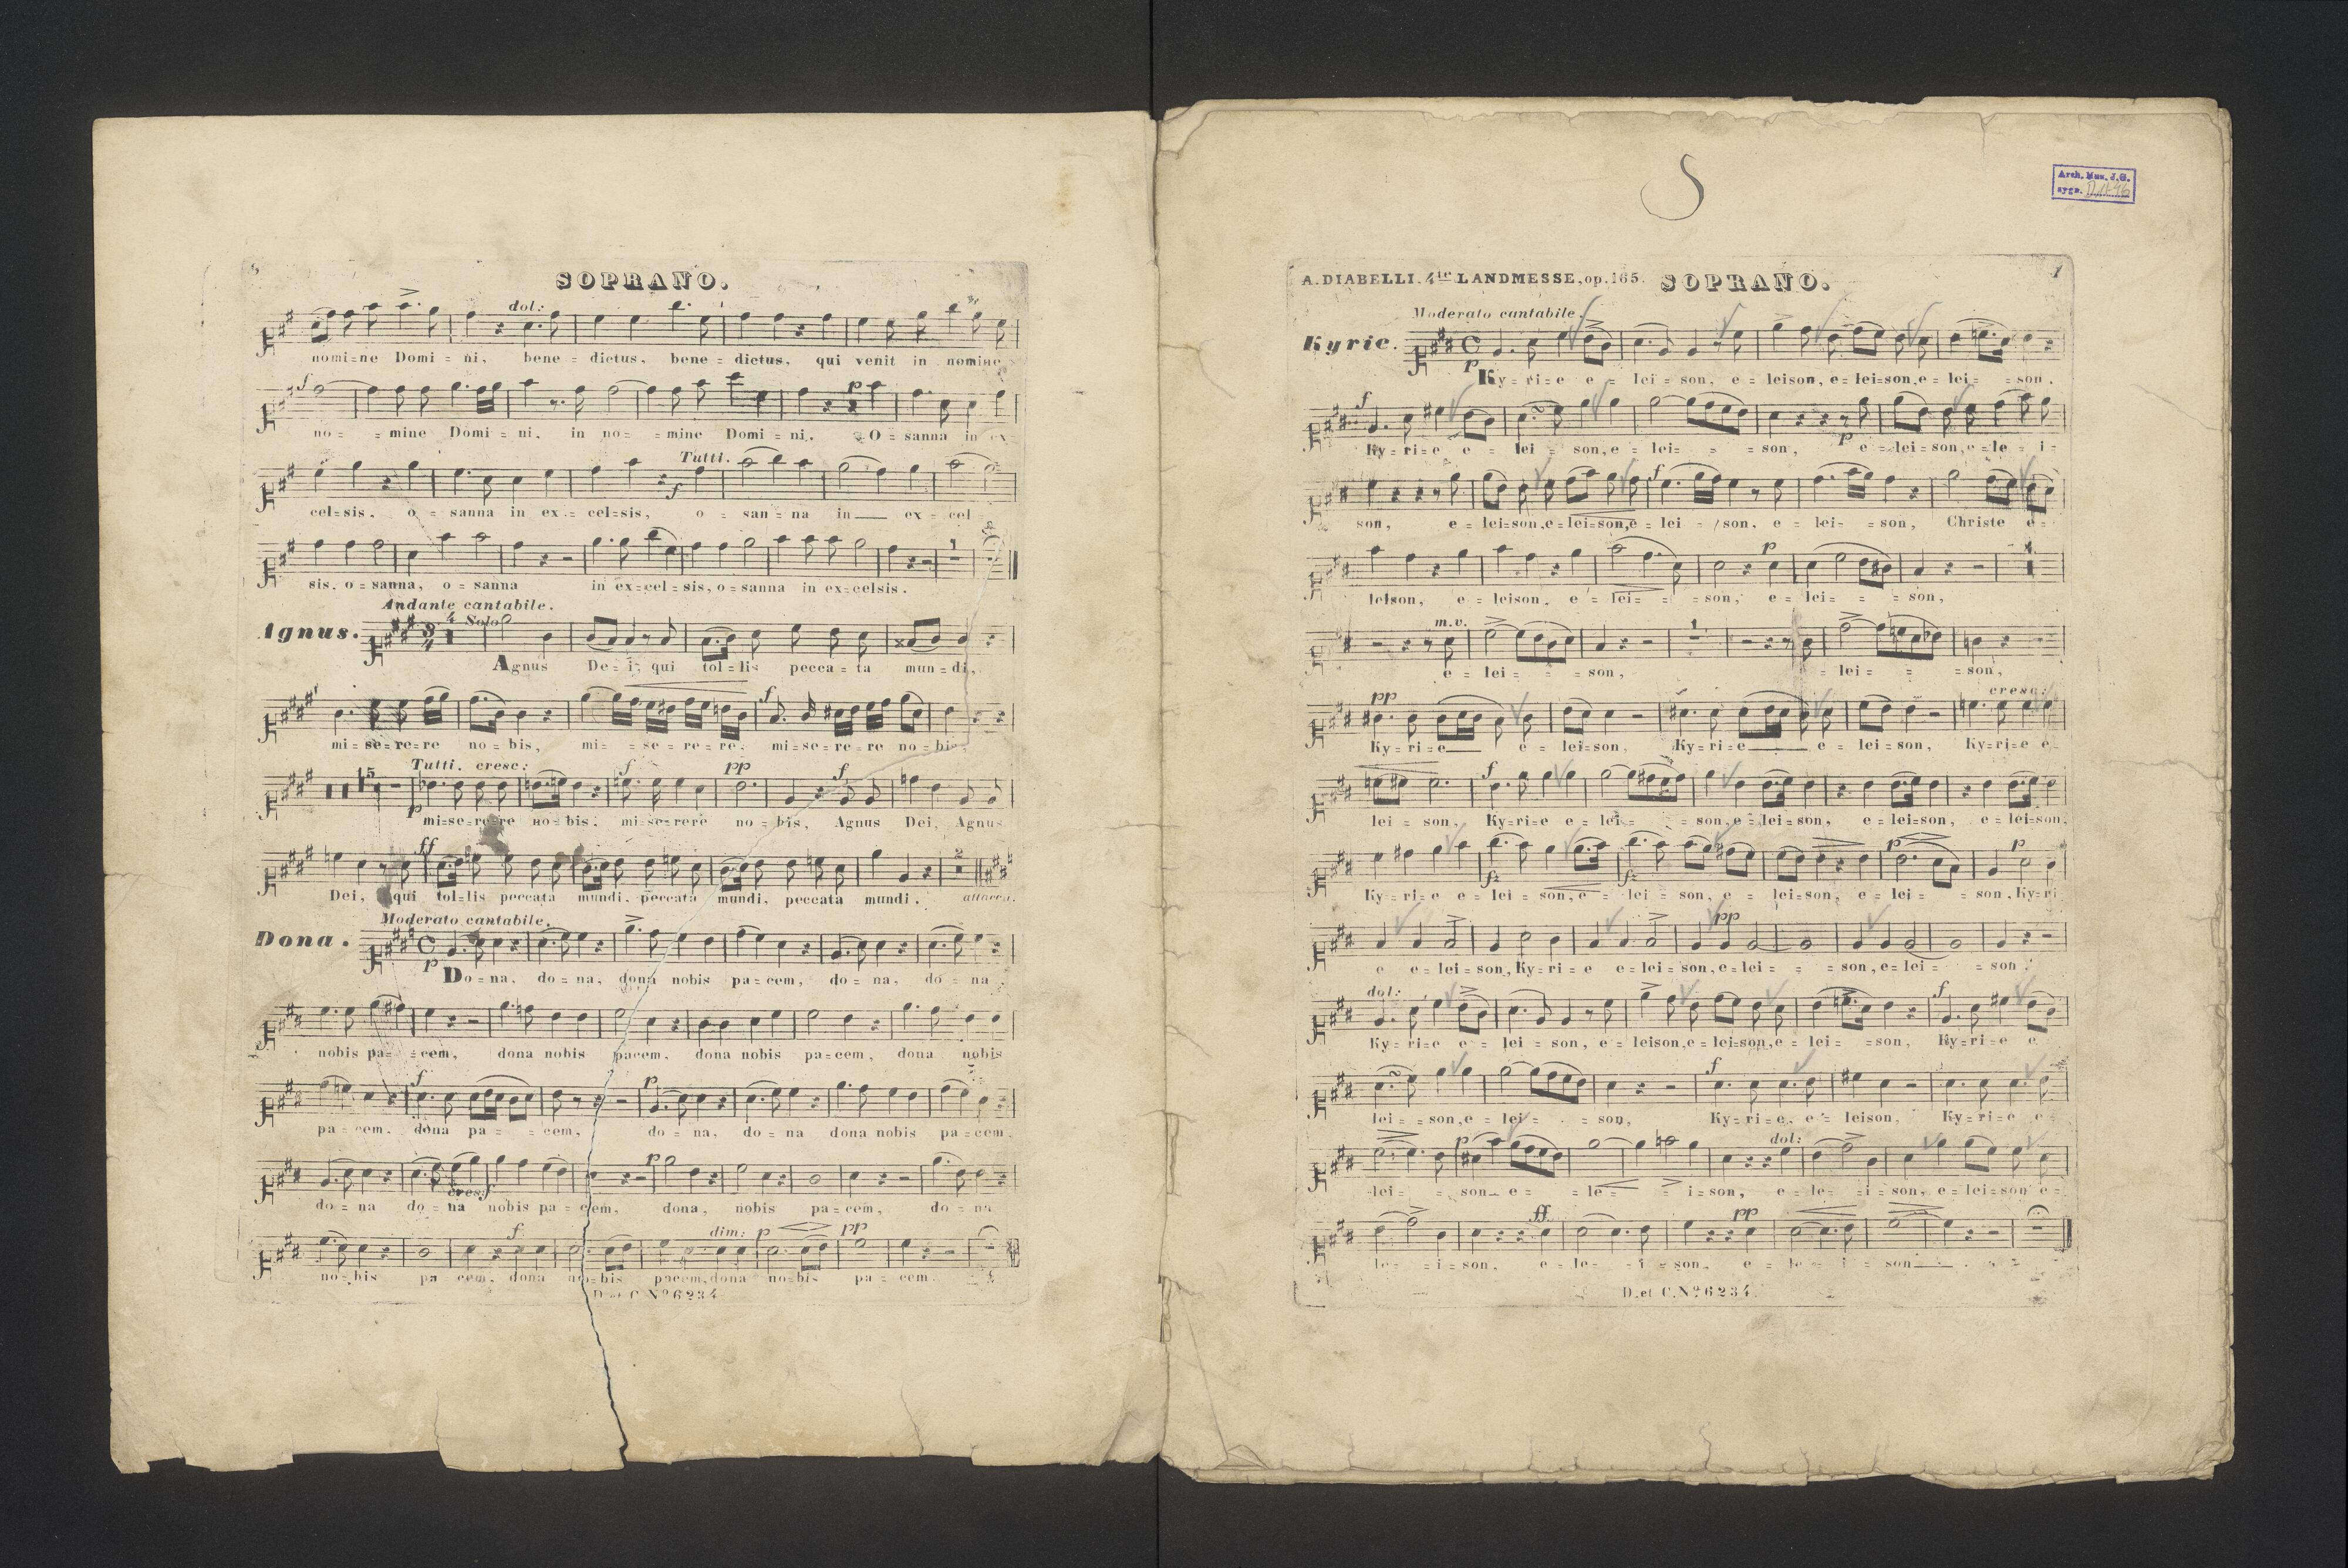 SOPRANO.
dol:
nomi=ne Domi = ni, bene = dictus, bene = dictus, qui venit in nomine
f p
no = = mine Domi = ni, in no = = mine Domi = ni. O = sanna in ex=
Tutti. f
cel=sis, o = sanna in ex = cel=sis, o = san = na in ex = cel
1
sis, o = sanna, o = sanna in ex=cel = sis, o = sanna in ex=celsis.
Andante cantabile.
Agnus. 3 4 4 Solo
Agnus De = i, qui tol = lis pecca = ta mun = di,
f
mi = se = re = re no = bis, mi = = se = re = re, mi = se = re = re no = bis,
5 Tutti. cresc: f pp f
p
mi=se=re=re no = bis, mi=se=rere no = bis, Agnus Dei, Agnus
ff 2
Dei, qui tol=lis peccata mundi, peccata mundi, peccata mundi. attacca.
Moderato cantabile.
Dona. C p
Do = na, do = na, dona nobis pa = cem, do = na, do = na
nobis pa = = cem, dona nobis pacem, dona nobis pa = cem, dona nobis
f p
pa = cem, dona pa = = cem, do = na, do = na dona nobis pa = cem,
p
cres: f
do = na do = na nobis pa = cem, dona, nobis pa = cem, do = na
f dim: p pp
no = bis pa cem, dona no=bis pacem, dona no=bis pa = cem.
D. et C. No 6234
S
Arch. Muz. J.G.
sygn.
A. DIABELLI. 4te LANDMESSE, op. 165. SOPRANO. 1
Moderato cantabile.
Kyrie. C p
Ky = ri = e e = lei = son, e = leison, e = lei=son, e = lei = = son.
f p
Ky = ri = e e = lei = son, e = lei = = = son, e = lei = son, e = le = i =
f
son, e = lei=son, e=lei=son, e = lei = son, e = lei = son, Christe e =
p 1
leison, e = leison, e = lei = = son, e = lei = = son,
m.v. 1
e = lei = = = son, = lei = = = son,
pp cresc:
Ky = ri = e e = lei=son, Ky = ri = e e = lei = son, Ky=ri=e e=
f
lei = son, Ky=ri=e e = lei = = son, e = lei = son, e = lei=son, e = lei=son,
p p
fz fz
Ky = ri = e e = lei = son, e = lei = son, e = lei=son, e = lei = = son, Ky=ri
pp
e e = lei = son, Ky = ri = e e = lei = son, e = lei = = = son, e = lei = = son.
dol: f
Ky = ri=e e = lei = son, e = leison, e = lei=son, e = lei = = son, Ky = ri = e e
f
lei = = son, e = lei = = = son, Ky = ri = e, e = leison, Ky = ri = e e =
p dol:
lei = = son e = = le = = i = son, e = le = = i = son, e = lei = son e =
ff pp
le = = i = son, e = le = = i = son, e = le = i = son
D. et C. No 6234.